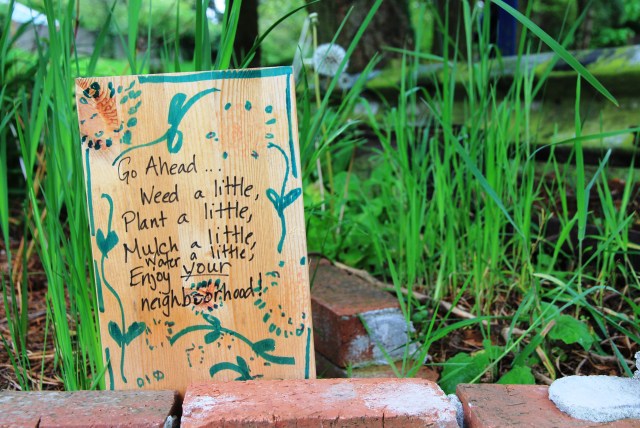 Go Ahead...
Weed a little,
Plant a little,
Mulch a little,
Water a little,
Enjoy your
neighborhood!